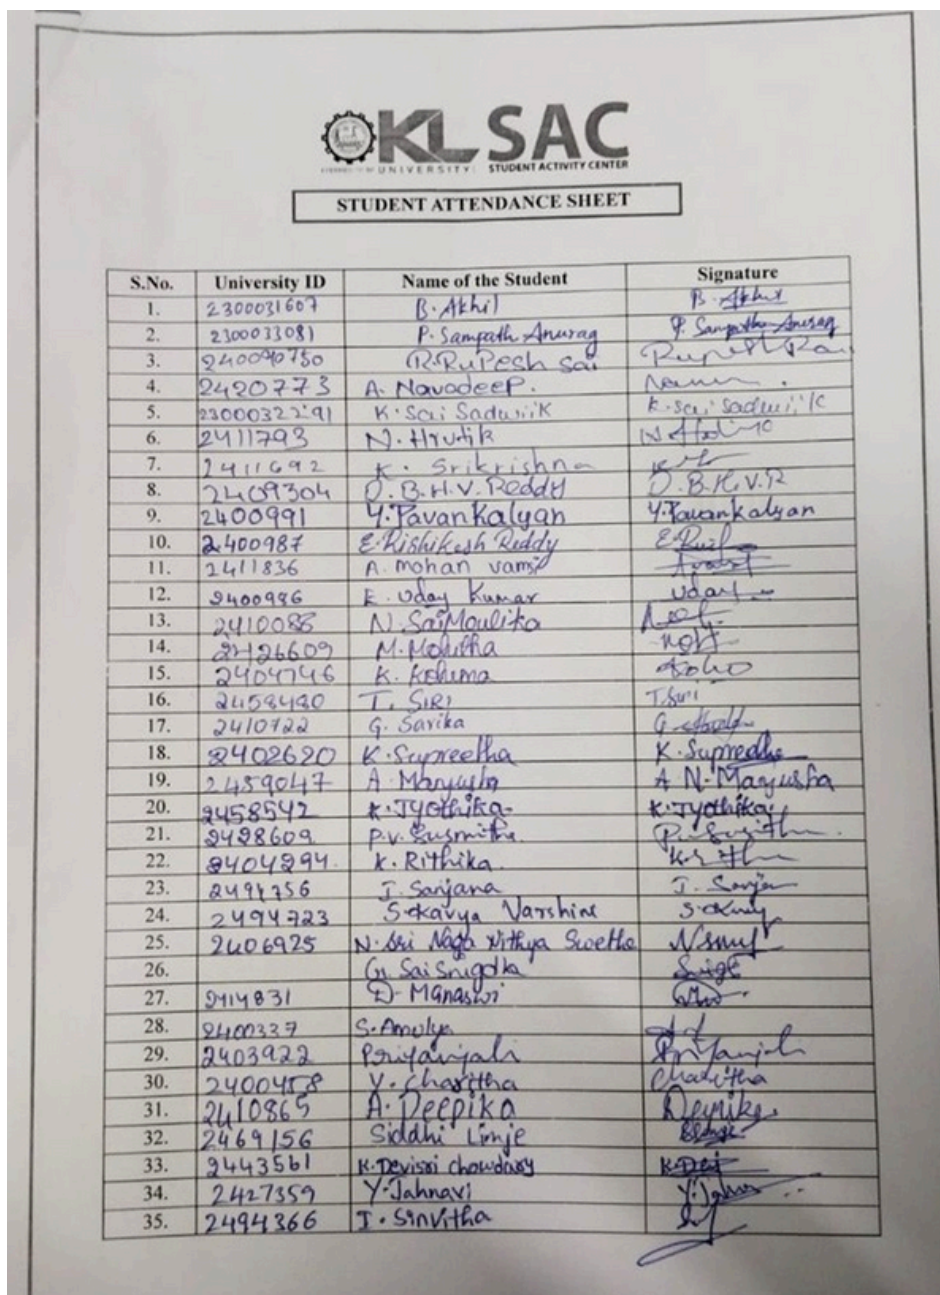 KL SAC
UNIVERSITY STUDENT ACTIVITY CENTER
STUDENT ATTENDANCE SHEET
S.No. University ID Name of the Student Signature
1. 2300031607 B. Akhil B. Akhil
2. 2300033081 P. Sampath Anurag P. Sampath Anurag
3. 240090750 R. RuPesh sai
4. 2420773 A. NavadeeP.
5. K. Sai Sadwiik K. sai sadwiik
6. 2411793 N. Hrutik
7. 2411692 K. Srikrishna
8. 2409304 D. B.H.V. Reddy D. B.H.V.R
9. 2400991 Y. Pavan Kalyan Y. Pavan kalyan
10. 2400987 E. Rishikesh Reddy
11. 2411836 A. mohan vamsi
12. 2400986 E. Uday Kumar Uday
13. 2410086 N. Sai Moulika
14. 2426609 M. Mohitha
15. 2404746 K.
16. 2458480 T. SIRI T. Siri
17. 2410722 G. Sarika
18. 2402620 K. Supreetha K. Supreetha
19. 2459047 A. Manyusha A N. Manyusha
20. 2458542 K. Jyothika K. Jyothika
21. 2428609 P.V. Susmitha
22. 2404294 K. Rithika
23. 2494756 I. Sanjana
24. 2494723 S. Kavya Varshini
25. 2406925 N. Sri Naga Nithya Swetha
26. G. Sai Snigdha
27. 2414831 D. Manaswi
28. 2400337 S. Amulya
29. 2403922 Priyanjali Priyanjali
30. 2400458 Y. Charitha Charitha
31. 2410865 A. Deepika Deepika
32. 2469156 Siddhi Limje
33. 2443561 K. Devisri chowdary
34. 2427359 Y. Jahnavi
35. 2494366 I. Sinvitha